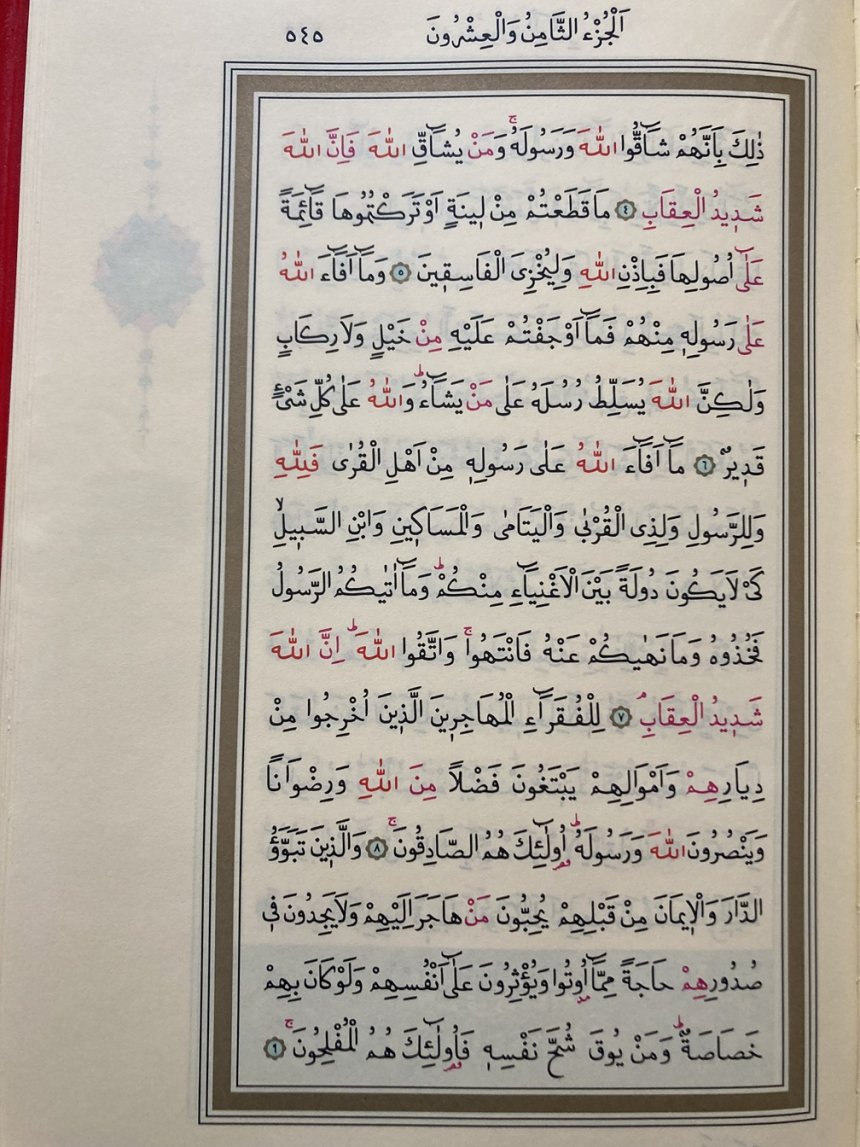 اَلْجُزْءُ الثَّامِنُ وَالْعِشْرُونَ ٥٤٥
ذٰلِكَ بِاَنَّهُمْ شَٓاقُّوا اللّٰهَ وَرَسُولَهُۚ وَمَنْ يُشَٓاقِّ اللّٰهَ فَاِنَّ اللّٰهَ
شَد۪يدُ الْعِقَابِ ٤ مَا قَطَعْتُمْ مِنْ ل۪ينَةٍ اَوْ تَرَكْتُمُوهَا قَٓائِمَةً
عَلٰٓى اُصُولِهَا فَبِاِذْنِ اللّٰهِ وَلِيُخْزِيَ الْفَاسِق۪ينَ ٥ وَمَٓا اَفَٓاءَ اللّٰهُ
عَلٰى رَسُولِه۪ مِنْهُمْ فَمَٓا اَوْجَفْتُمْ عَلَيْهِ مِنْ خَيْلٍ وَلَا رِكَابٍ
وَلٰكِنَّ اللّٰهَ يُسَلِّطُ رُسُلَهُ عَلٰى مَنْ يَشَٓاءُۜ وَاللّٰهُ عَلٰى كُلِّ شَيْءٍ
قَد۪يرٌ ٦ مَٓا اَفَٓاءَ اللّٰهُ عَلٰى رَسُولِه۪ مِنْ اَهْلِ الْقُرٰى فَلِلّٰهِ
وَلِلرَّسُولِ وَلِذِي الْقُرْبٰى وَالْيَتَامٰى وَالْمَسَاك۪ينِ وَابْنِ السَّب۪يلِۙ
كَيْ لَا يَكُونَ دُولَةً بَيْنَ الْاَغْنِيَٓاءِ مِنْكُمْۜ وَمَٓا اٰتٰيكُمُ الرَّسُولُ
فَخُذُوهُ وَمَا نَهٰيكُمْ عَنْهُ فَانْتَهُواۚ وَاتَّقُوا اللّٰهَۜ اِنَّ اللّٰهَ
شَد۪يدُ الْعِقَابِۢ ٧ لِلْفُقَرَٓاءِ الْمُهَاجِر۪ينَ الَّذ۪ينَ اُخْرِجُوا مِنْ
دِيَارِهِمْ وَاَمْوَالِهِمْ يَبْتَغُونَ فَضْلًا مِنَ اللّٰهِ وَرِضْوَانًا
وَيَنْصُرُونَ اللّٰهَ وَرَسُولَهُۜ اُو۬لٰٓئِكَ هُمُ الصَّادِقُونَۚ ٨ وَالَّذ۪ينَ تَبَوَّؤُ
الدَّارَ وَالْا۪يمَانَ مِنْ قَبْلِهِمْ يُحِبُّونَ مَنْ هَاجَرَ اِلَيْهِمْ وَلَا يَجِدُونَ ف۪ي
صُدُورِهِمْ حَاجَةً مِمَّٓا اُو۫تُوا وَيُؤْثِرُونَ عَلٰٓى اَنْفُسِهِمْ وَلَوْ كَانَ بِهِمْ
خَصَاصَةٌۜ وَمَنْ يُوقَ شُحَّ نَفْسِه۪ فَاُو۬لٰٓئِكَ هُمُ الْمُفْلِحُونَۚ ٩